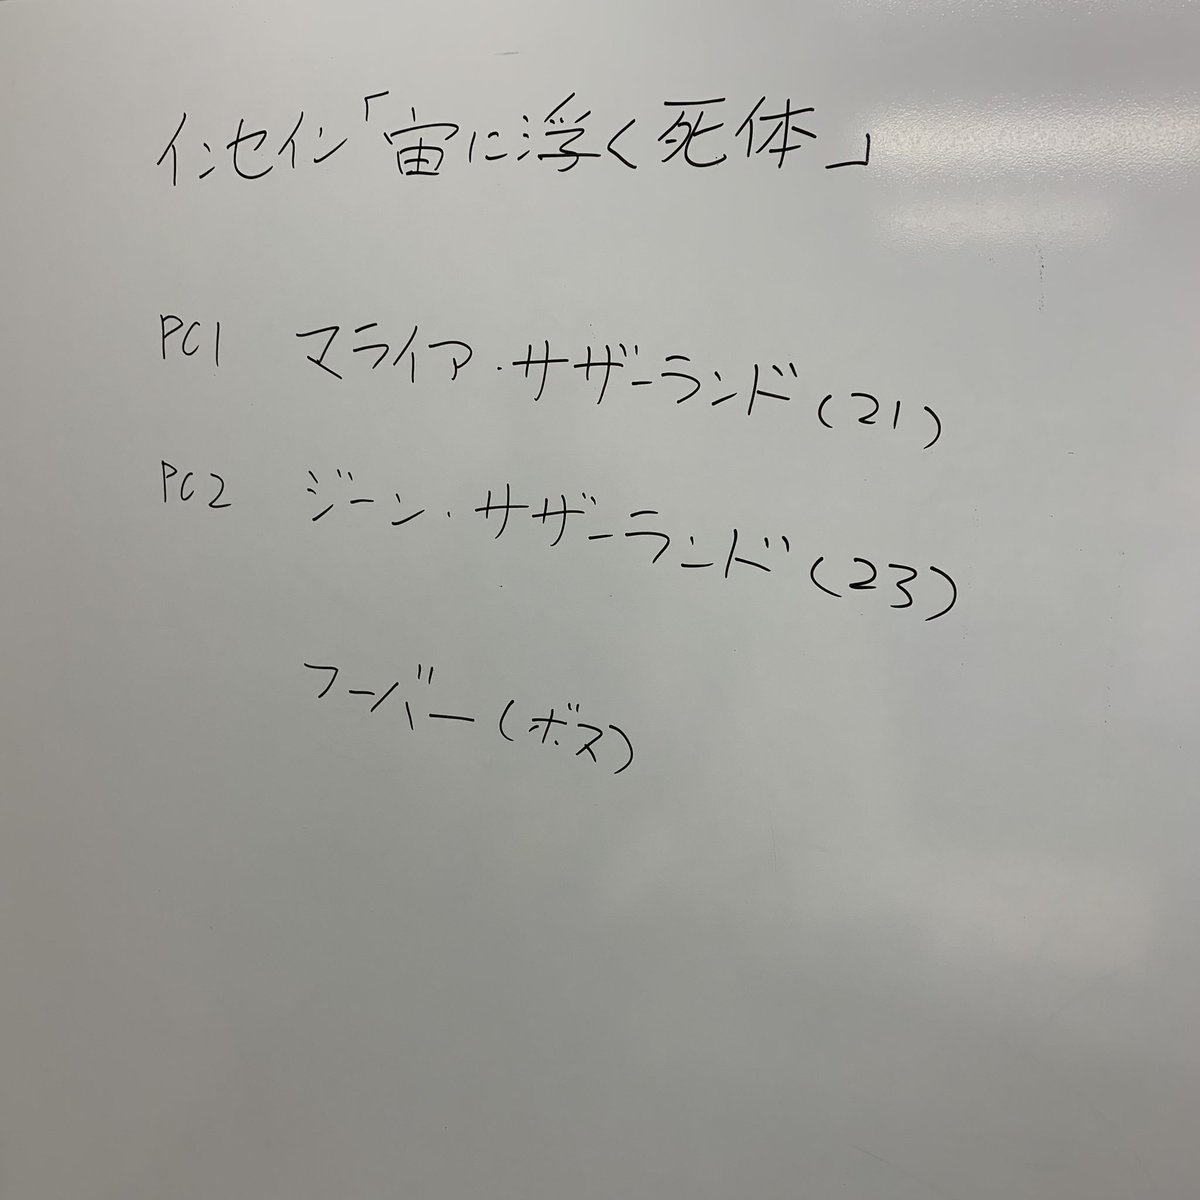 インセイン「宙に浮く死体」
PC1 マライア・サザーランド(21)
PC2 ジーン・サザーランド(23)
フーバー(ボス)